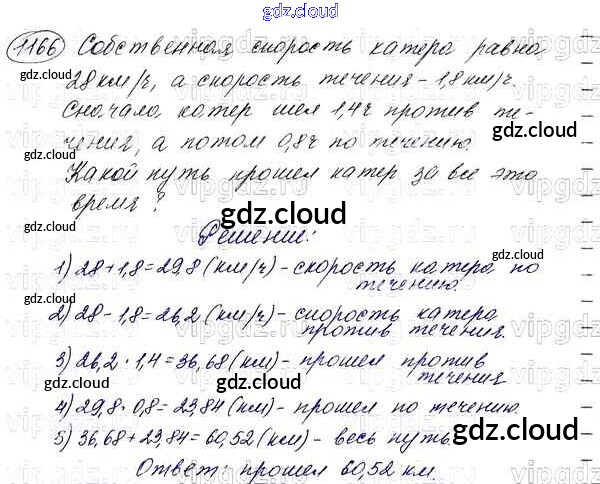 gdz.cloud
1166 Собственная скорость катера равна
gdz.cloud
28 км/ч, а скорость течения - 1,8 км/ч.
Сначала катер шел 1,4 ч против те-
gdz.cloud
чения, а потом 0,8 ч по течению.
Какой путь прошел катер за все это
время?
gdz.cloud
Решение:
1) 28 + 1,8 = 29,8 (км/ч) - скорость катера по
течению.
gdz.cloud
2) 28 - 1,8 = 26,2 (км/ч) - скорость катера
против течения.
3) 26,2 · 1,4 = 36,68 (км) - прошел против
течения
gdz.cloud
4) 29,8 · 0,8 = 23,84 (км) - прошел по течению.
5) 36,68 + 23,84 = 60,52 (км) - весь путь.
gdz.cloud
Ответ: прошел 60,52 км.
gdz.cloud